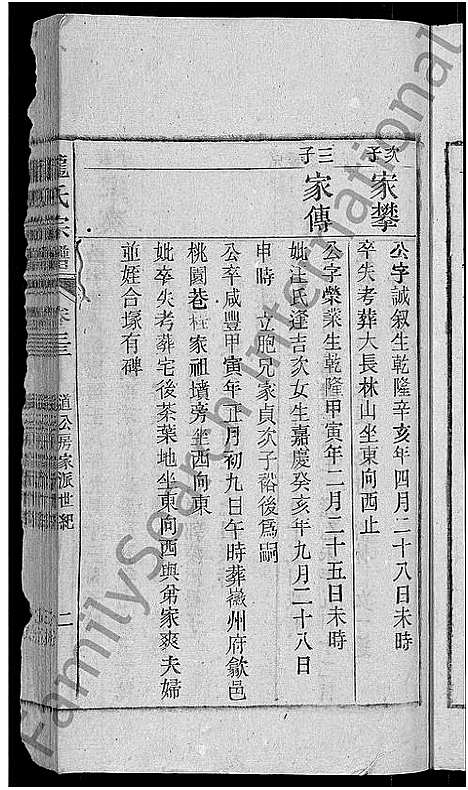 次子
家攀
公字誠叙生乾隆辛亥年四月二十八日未時
卒失考葬大長林山坐東向西止
三子
家傳
公字榮萊生乾隆甲寅年二月二十五日未時
妣汪氏逢吉次女生嘉慶癸亥年九月二十八日
申時 立胞兄家貞次子裕後爲嗣
公卒咸豐甲寅年正月初九日午時葬徽州府歙邑
桃園巷 家祖墳旁坐西向東
妣卒失考葬宅後茶葉地坐東向西與弟家爽夫婦
並姪合塚有碑
氏宗譜
卷之三
道公房家派世紀
二
FamilySearch International